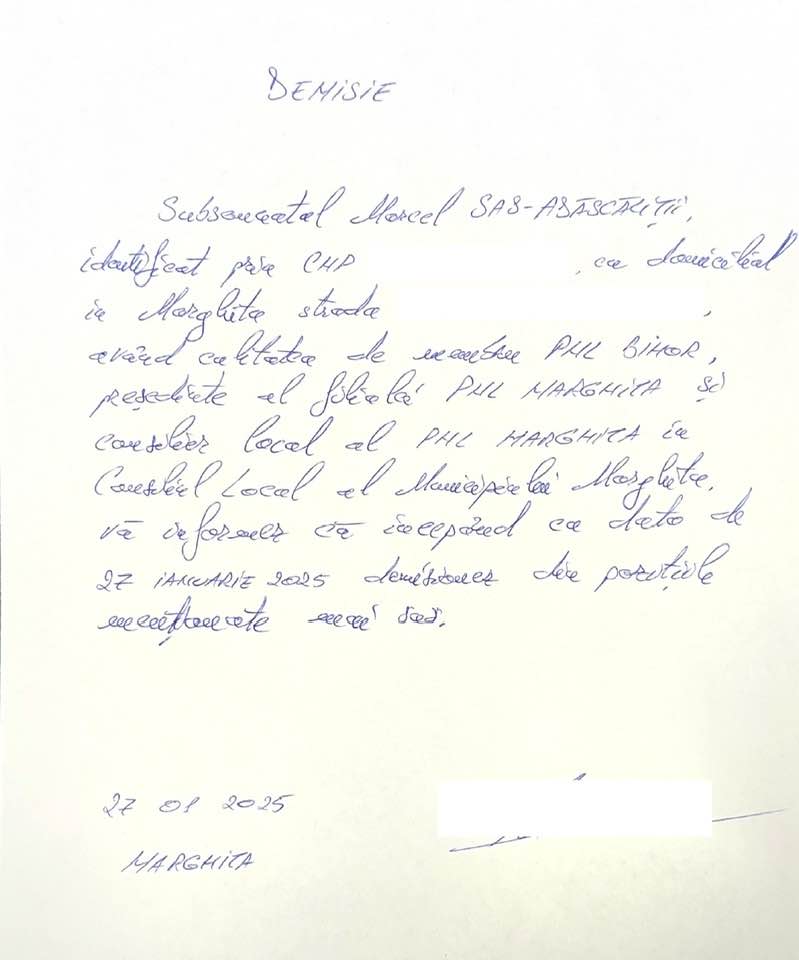 DEMISIE
Subsemnatul Marcel SAS-ABĂSCĂLIȚII,
identificat prin CNP , cu domiciliul
in Marghita strada ,
având calitatea de membru PNL BIHOR,
președinte al filialei PNL MARGHITA și
consilier local al PNL MARGHITA in
Consiliul Local al Municipiului Marghita,
vă informez că incepând cu data de
27 IANUARIE 2025 demisionez din pozițiile
menționate mai sus.
27 01 2025
MARGHITA